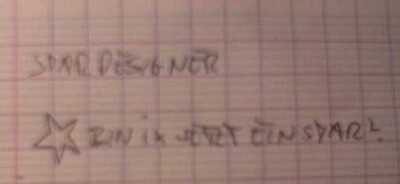 STAR DESIGNER
BIN iX JETZT EIN STAR?